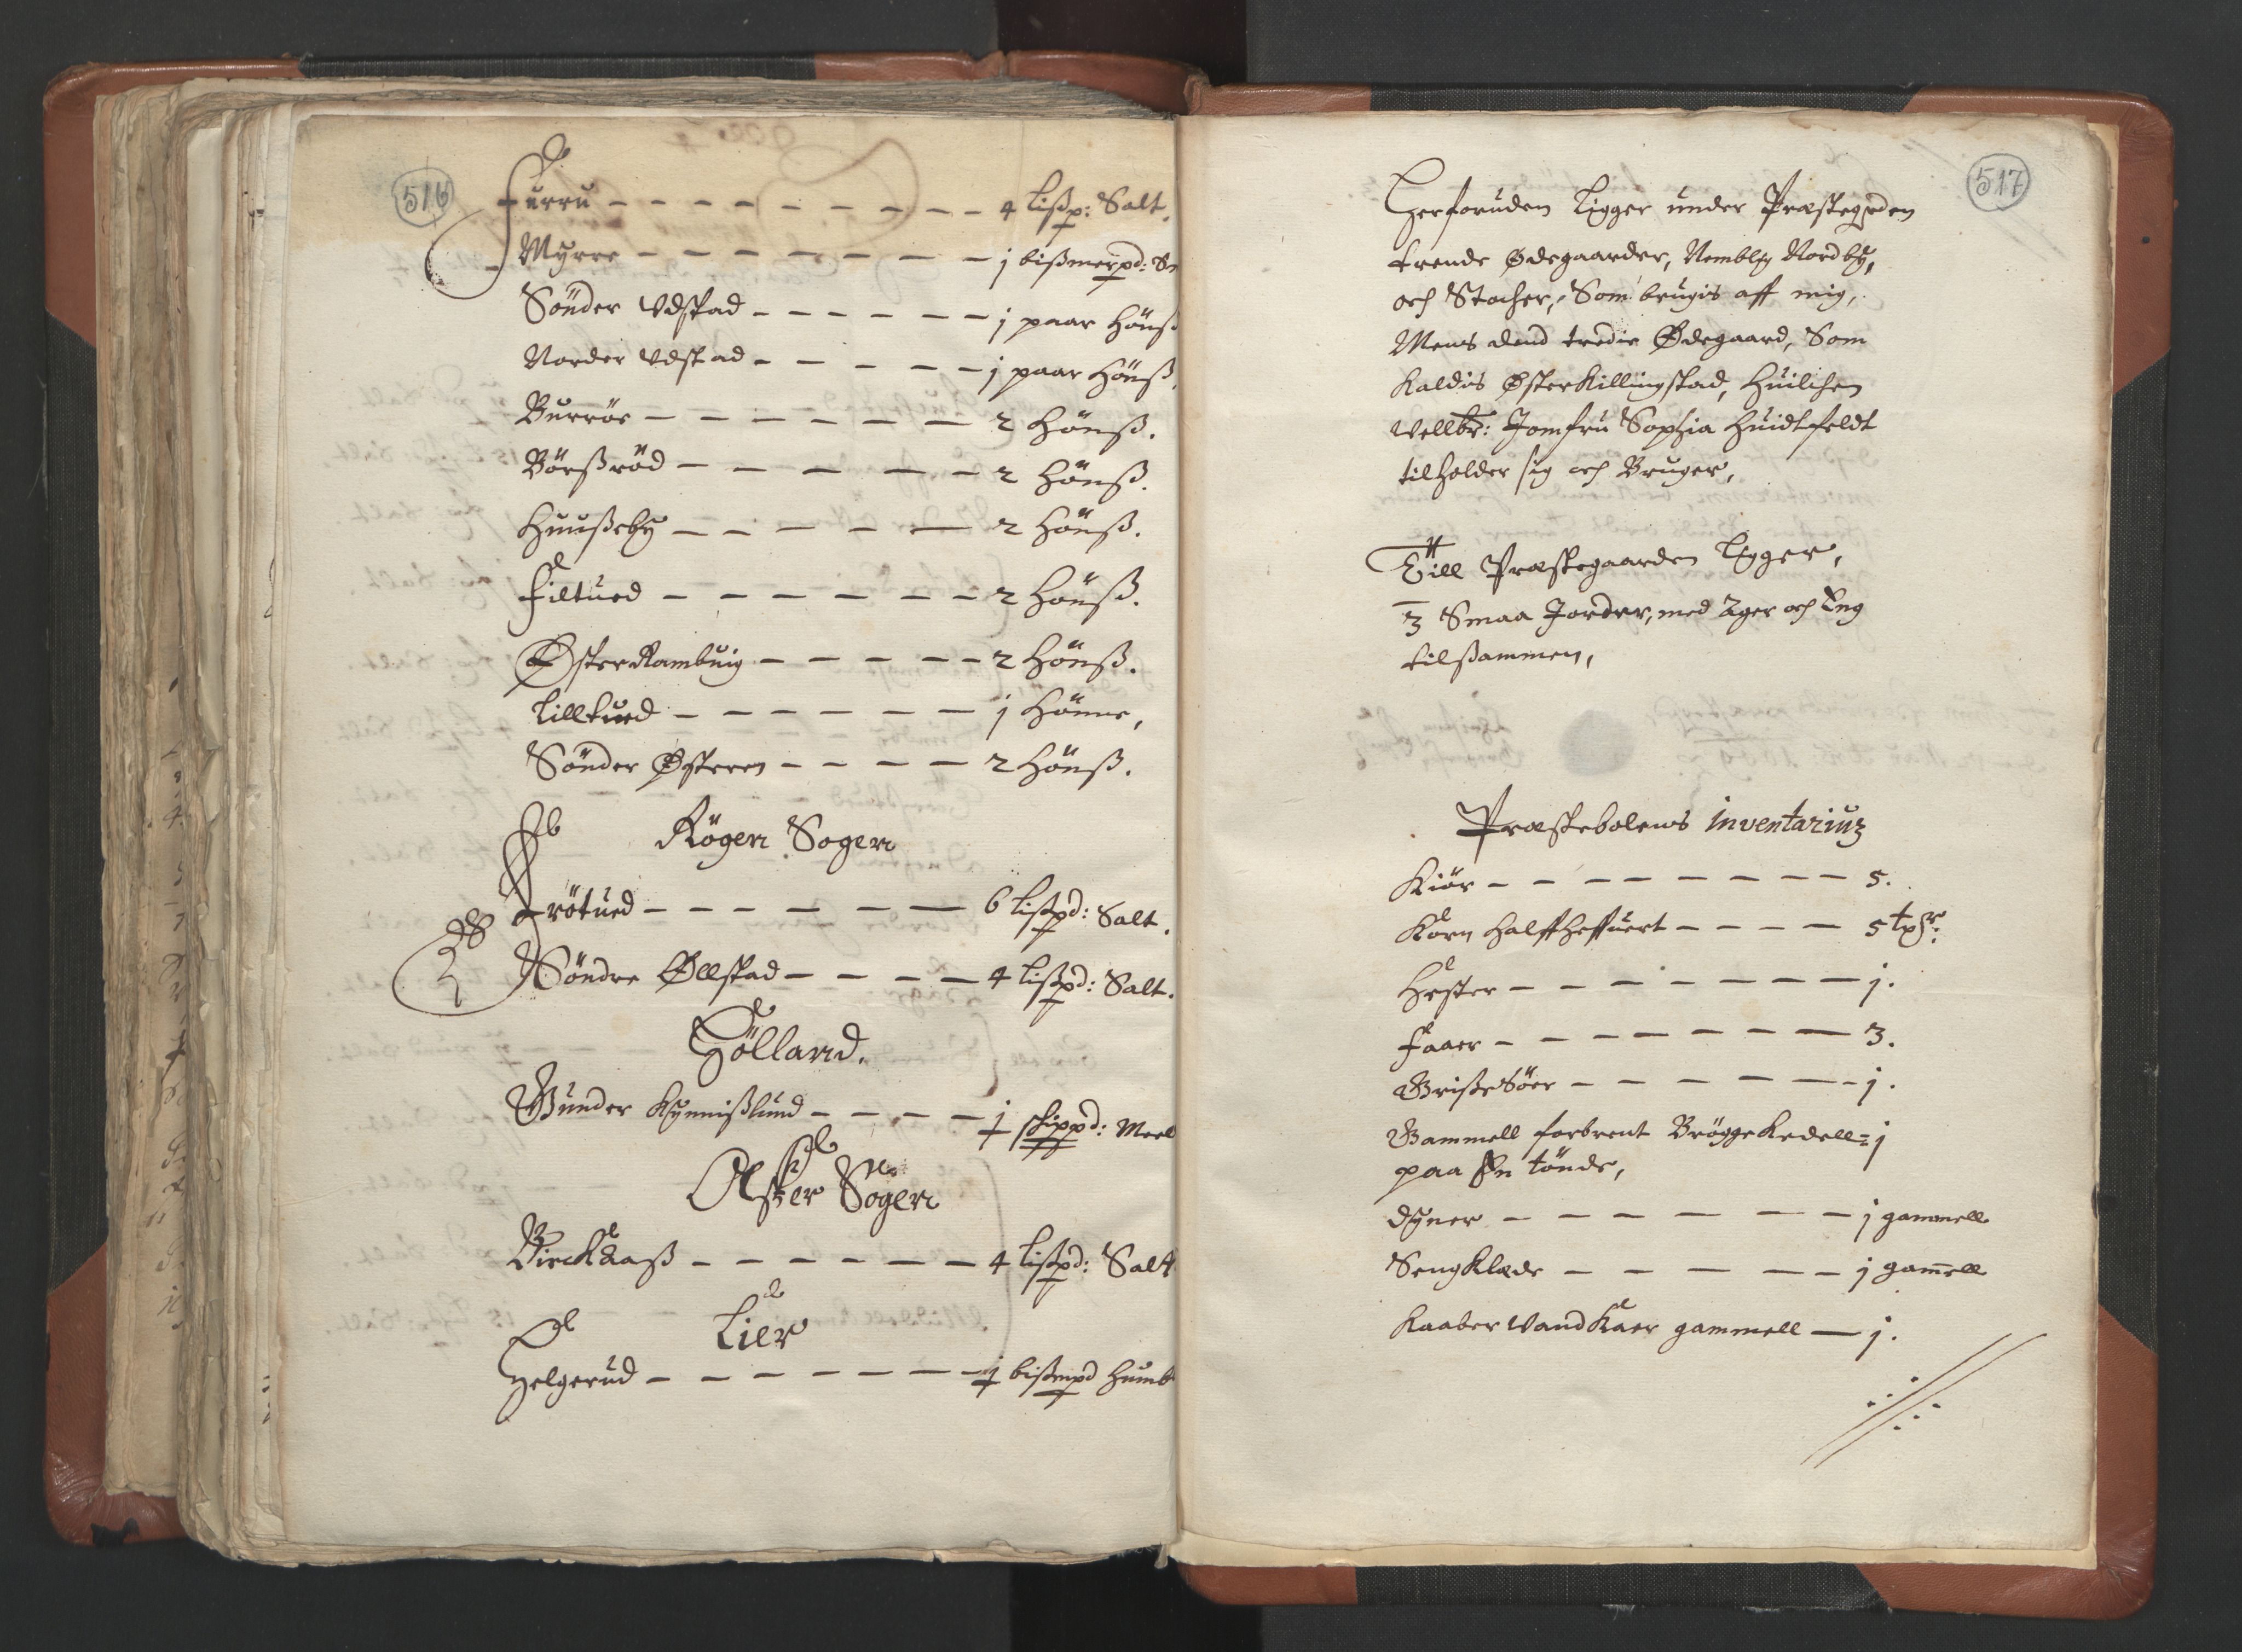 516
Furru - - - - - - - - - 4 lißp: Salt.
Myrre - - - - - - - 1 bißmerpd: Sm
Sönder Vdstad - - - - - - 1 paar Hönß
Norder Vdstad - - - - - 1 paar Hönß.
Burröe - - - - - - 2 Hönß.
Börßröd - - - - - - 2 Hönß.
Huußeby - - - - - 2 Hönß.
Filtued - - - - - - - 2 Hönß.
Øster Rambuig - - - - - 2 Hönß.
Lilltued - - - - - - 1 Hönne,
Sönder Østeren - - - - 2 Hönß.
Rögen Sogen
Frötued - - - - - - 6 lißpd: Salt.
Söndre Øllstad - - - - 4 lißpd: Salt.
Hölland.
Gunder Kynnißlund - - - - 1 skippd: Meel
Asker Sogen
Birckaaß - - - - - - 4 lißpd: Salt
Lier
Helgerud - - - - - - - 1 bißmpd Humb
517
Herforuden Ligger under Præstegrden
trende Ødegaarder, Nemblig Nordby,
och Stocher, Som brugis aff mig,
Mens dend tredie Ødegaard, Som
Kaldis Øster Killingstad, Huilchen
Wellbr: Jomfru Sophia Huidtfeldt
tilholder sig och Bruger,
Till Præstegaarden Ligger,
3 Smaa Jorder, med Ager och Eng
tilßammen,
Præstebolens inventarium
Kiör - - - - - - - - - 5.
Korn Halffheffuert - - - - 5 tpr:
Hester - - - - - - - - 1.
Faaer - - - - - - - 3.
Grißesöer - - - - - - 1.
Gammell forbrent Bröggekedell = 1
paa En tönde,
dyner - - - - - - 1 gammell
Sengklæde - - - - - 1 gamell
Kaaber Vandkaer gammell — 1.